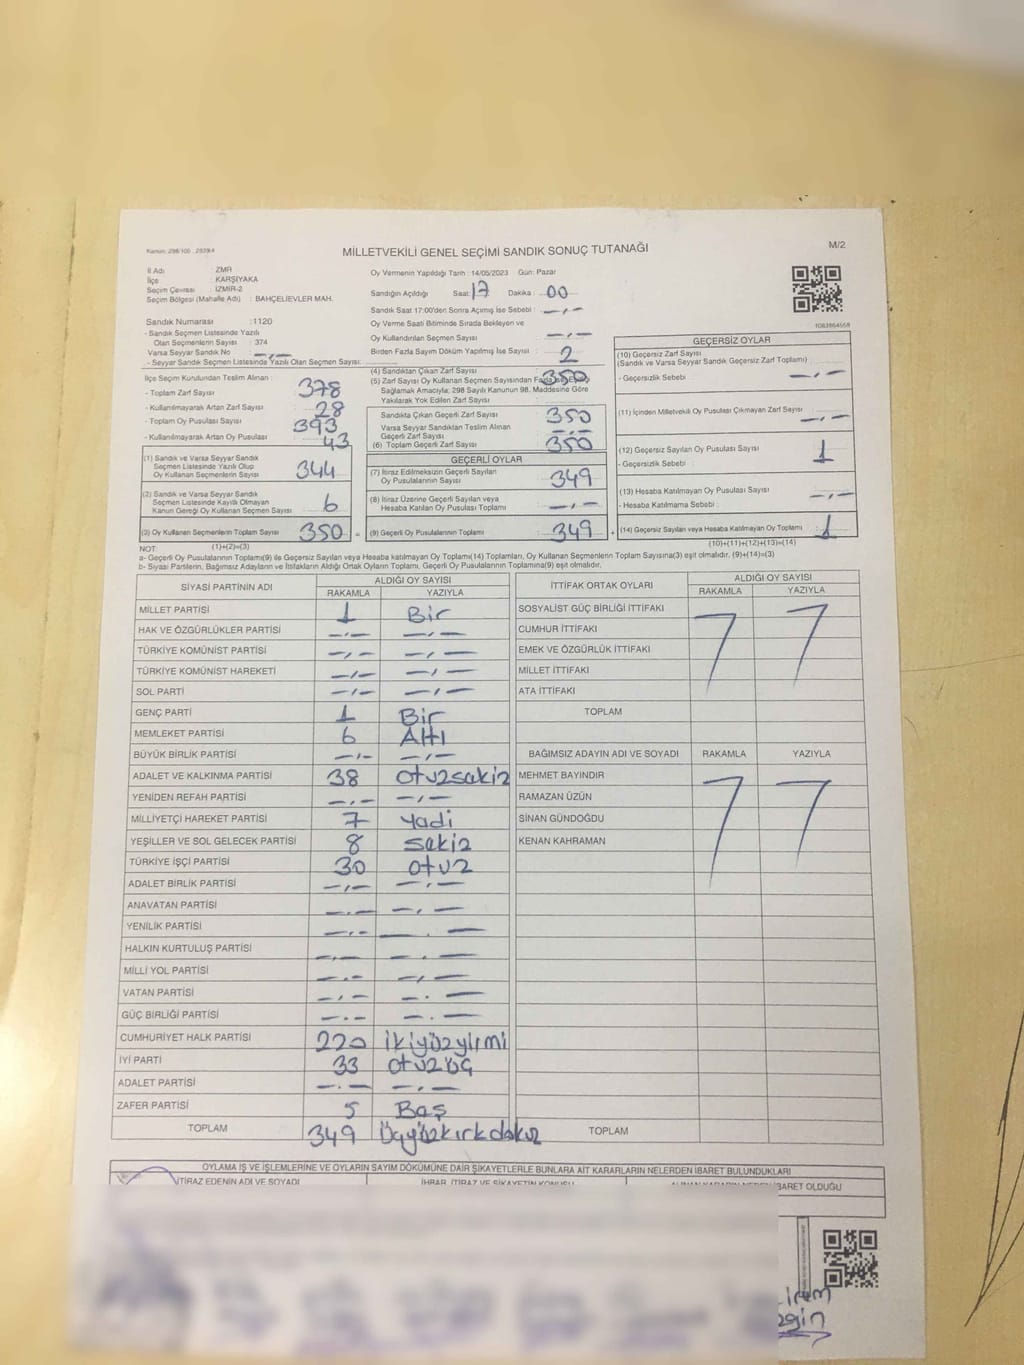 Kanun: 298/105 , 2839/4
MİLLETVEKİLİ GENEL SEÇİMİ SANDIK SONUÇ TUTANAĞI
M/2
İl Adı ZMR
İlçe : KARŞIYAKA
Seçim Çevrasi : İZMİR-2
Seçim Bölgesi (Mahalle Adı) : BAHÇELİEVLER MAH.
Sandık Numarası :1120
- Sandık Seçmen Listesinde Yazılı
Olan Seçmenlerin Sayısı : 374
Varsa Seyyar Sandık No -.-
- Seyyar Sandık Seçmen Listesinde Yazılı Olan Seçmen Sayısı:
Oy Vermenin Yapıldığı Tarih : 14/05/2023 Gün: Pazar
Sandığın Açıldığı Saat: 17 Dakika : 00
Sandık Saat 17:00'den Sonra Açılmış İse Sebebi : -.-
Oy Verme Saati Bitiminde Sırada Bekleyen ve
Oy Kullandırılan Seçmen Sayısı : -.-
Birden Fazla Sayım Döküm Yapılmış İse Sayısı : 2
1083864558
İlçe Seçim Kurulundan Teslim Alınan :
- Toplam Zarf Sayısı 378
- Kullanılmayarak Artan Zarf Sayısı 28
- Toplam Oy Pusulası Sayısı 393
- Kullanılmayarak Artan Oy Pusulası 43
(1) Sandık ve Varsa Seyyar Sandık
Seçmen Listesinde Yazılı Olup
Oy Kullanan Seçmenlerin Sayısı 344
(2) Sandık ve Varsa Seyyar Sandık
Seçmen Listesinde Kayıtlı Olmayan
Kanun Gereği Oy Kullanan Seçmen Sayısı 6
(3) Oy Kullanan Seçmenlerin Toplam Sayısı 350
(4) Sandıktan Çıkan Zarf Sayısı 350
(5) Zarf Sayısı Oy Kullanan Seçmen Sayısından
Sağlamak Amacıyla; 298 Sayılı Kanunun 98. Maddesine Göre
Yakılarak Yok Edilen Zarf Sayısı
Sandıkta Çıkan Geçerli Zarf Sayısı 350
Varsa Seyyar Sandıktan Teslim Alınan
Geçerli Zarf Sayısı -.-
(6) Toplam Geçerli Zarf Sayısı 350
GEÇERLİ OYLAR
(7) İtiraz Edilmeksizin Geçerli Sayılan
Oy Pusulalarının Sayısı 349
(8) İtiraz Üzerine Geçerli Sayılan veya
Hesaba Katılan Oy Pusulası Toplamı -.-
(9) Geçerli Oy Pusulalarının Toplamı 349
GEÇERSİZ OYLAR
(10) Geçersiz Zarf Sayısı
(Sandık ve Varsa Seyyar Sandık Geçersiz Zarf Toplamı)
- Geçersizlik Sebebi : -.-
(11) İçinden Milletvekili Oy Pusulası Çıkmayan Zarf Sayısı
-.-
(12) Geçersiz Sayılan Oy Pusulası Sayısı 1
- Geçersizlik Sebebi :
(13) Hesaba Katılmayan Oy Pusulası Sayısı -.-
- Hesaba Katılmama Sebebi :
(14) Geçersiz Sayılan veya Hesaba Katılmayan Oy Toplamı 1
NOT: (1)+(2)=(3) (10)+(11)+(12)+(13)=(14)
a- Geçerli Oy Pusulalarının Toplamı(9) ile Geçersiz Sayılan veya Hesaba katılmayan Oy Toplamı(14) Toplamları, Oy Kullanan Seçmenlerin Toplam Sayısına(3) eşit olmalıdır. (9)+(14)=(3)
b- Siyasi Partilerin, Bağımsız Adayların ve İttifakların Aldığı Ortak Oyların Toplamı, Geçerli Oy Pusulalarının Toplamına(9) eşit olmalıdır.
SİYASİ PARTİNİN ADI ALDIĞI OY SAYISI
RAKAMLA YAZIYLA
MİLLET PARTİSİ 1 Bir
HAK VE ÖZGÜRLÜKLER PARTİSİ -.- -.-
TÜRKİYE KOMÜNİST PARTİSİ -.- -.-
TÜRKİYE KOMÜNİST HAREKETİ -.- -.-
SOL PARTİ -.- -.-
GENÇ PARTİ 1 Bir
MEMLEKET PARTİSİ 6 Altı
BÜYÜK BİRLİK PARTİSİ -.- -.-
ADALET VE KALKINMA PARTİSİ 38 otuzsekiz
YENİDEN REFAH PARTİSİ -.- -.-
MİLLİYETÇİ HAREKET PARTİSİ 7 Yedi
YEŞİLLER VE SOL GELECEK PARTİSİ 8 sekiz
TÜRKİYE İŞÇİ PARTİSİ 30 otuz
ADALET BİRLİK PARTİSİ -.- -.-
ANAVATAN PARTİSİ -.- -.-
YENİLİK PARTİSİ -.- -.-
HALKIN KURTULUŞ PARTİSİ -.- -.-
MİLLİ YOL PARTİSİ -.- -.-
VATAN PARTİSİ -.- -.-
GÜÇ BİRLİĞİ PARTİSİ -.- -.-
CUMHURİYET HALK PARTİSİ 220 ikiyüzyirmi
İYİ PARTİ 33 otuzüç
ADALET PARTİSİ -.- -.-
ZAFER PARTİSİ 5 Beş
TOPLAM 349 Üçyüzkırkdokuz
İTTİFAK ORTAK OYLARI ALDIĞI OY SAYISI
RAKAMLA YAZIYLA
SOSYALİST GÜÇ BİRLİĞİ İTTİFAKI
CUMHUR İTTİFAKI
EMEK VE ÖZGÜRLÜK İTTİFAKI
MİLLET İTTİFAKI
ATA İTTİFAKI
TOPLAM
BAĞIMSIZ ADAYIN ADI VE SOYADI RAKAMLA YAZIYLA
MEHMET BAYINDIR
RAMAZAN ÜZÜN
SİNAN GÜNDOĞDU
KENAN KAHRAMAN
TOPLAM
OYLAMA İŞ VE İŞLEMLERİNE VE OYLARIN SAYIM DÖKÜMÜNE DAİR ŞİKAYETLERLE BUNLARA AİT KARARLARIN NELERDEN İBARET BULUNDUKLARI
İTİRAZ EDENİN ADI VE SOYADI İHBAR, İTİRAZ VE ŞİKAYETİN KONUSU İBARET OLDUĞU